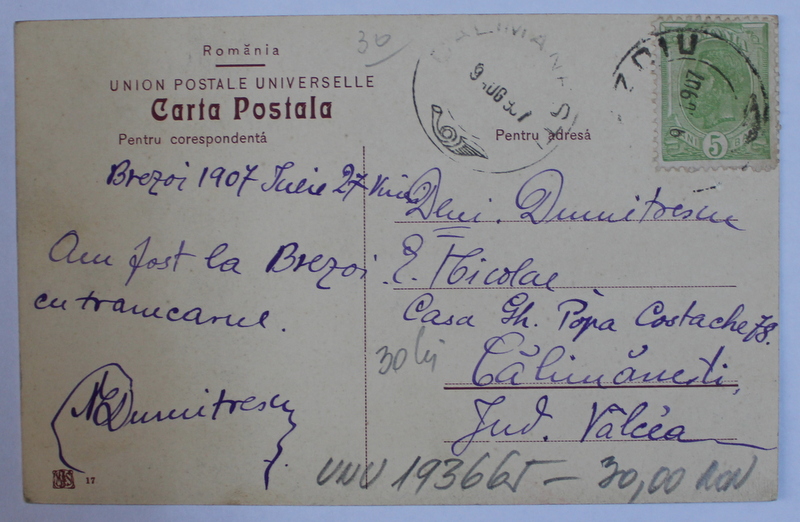 România
UNION POSTALE UNIVERSELLE
Carta Postala
Pentru corespondentă
Pentru adresă
30
CALIMANESCI
ZOIU
5
Brezoi 1907 Iulie 27
Am fost la Brezoi
cu tramcarul.
N. Dumitrescu
D-lui. Dumitrescu
E. Nicolae
Casa Gh. Popa Costache 78.
Călimănești,
Jud. Vâlcea
30 lei
17
30,00 RON